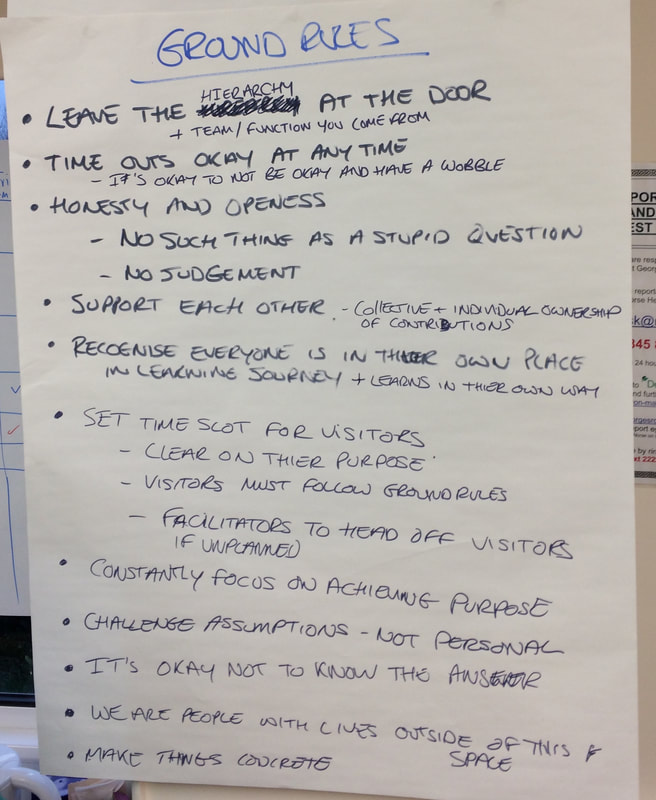 GROUND RULES
HIERARCHY
• LEAVE THE AT THE DOOR
+ TEAM/FUNCTION YOU COME FROM
• TIME OUTS OKAY AT ANY TIME
- IT'S OKAY TO NOT BE OKAY AND HAVE A WOBBLE
• HONESTY AND OPENESS
- NO SUCH THING AS A STUPID QUESTION
- NO JUDGEMENT
• SUPPORT EACH OTHER - COLLECTIVE + INDIVIDUAL OWNERSHIP
OF CONTRIBUTIONS
• RECOGNISE EVERYONE IS IN THIER OWN PLACE
IN LEARNING JOURNEY + LEARNS IN THIER OWN WAY
• SET TIME SLOT FOR VISITORS
- CLEAR ON THIER PURPOSE
- VISITORS MUST FOLLOW GROUND RULES
- FACILITATORS TO HEAD OFF VISITORS
IF UNPLANNED
• CONSTANTLY FOCUS ON ACHIEVING PURPOSE
• CHALLENGE ASSUMPTIONS - NOT PERSONAL
• IT'S OKAY NOT TO KNOW THE ANSWER
• WE ARE PEOPLE WITH LIVES OUTSIDE OF THIS
SPACE
• MAKE THINGS CONCRETE